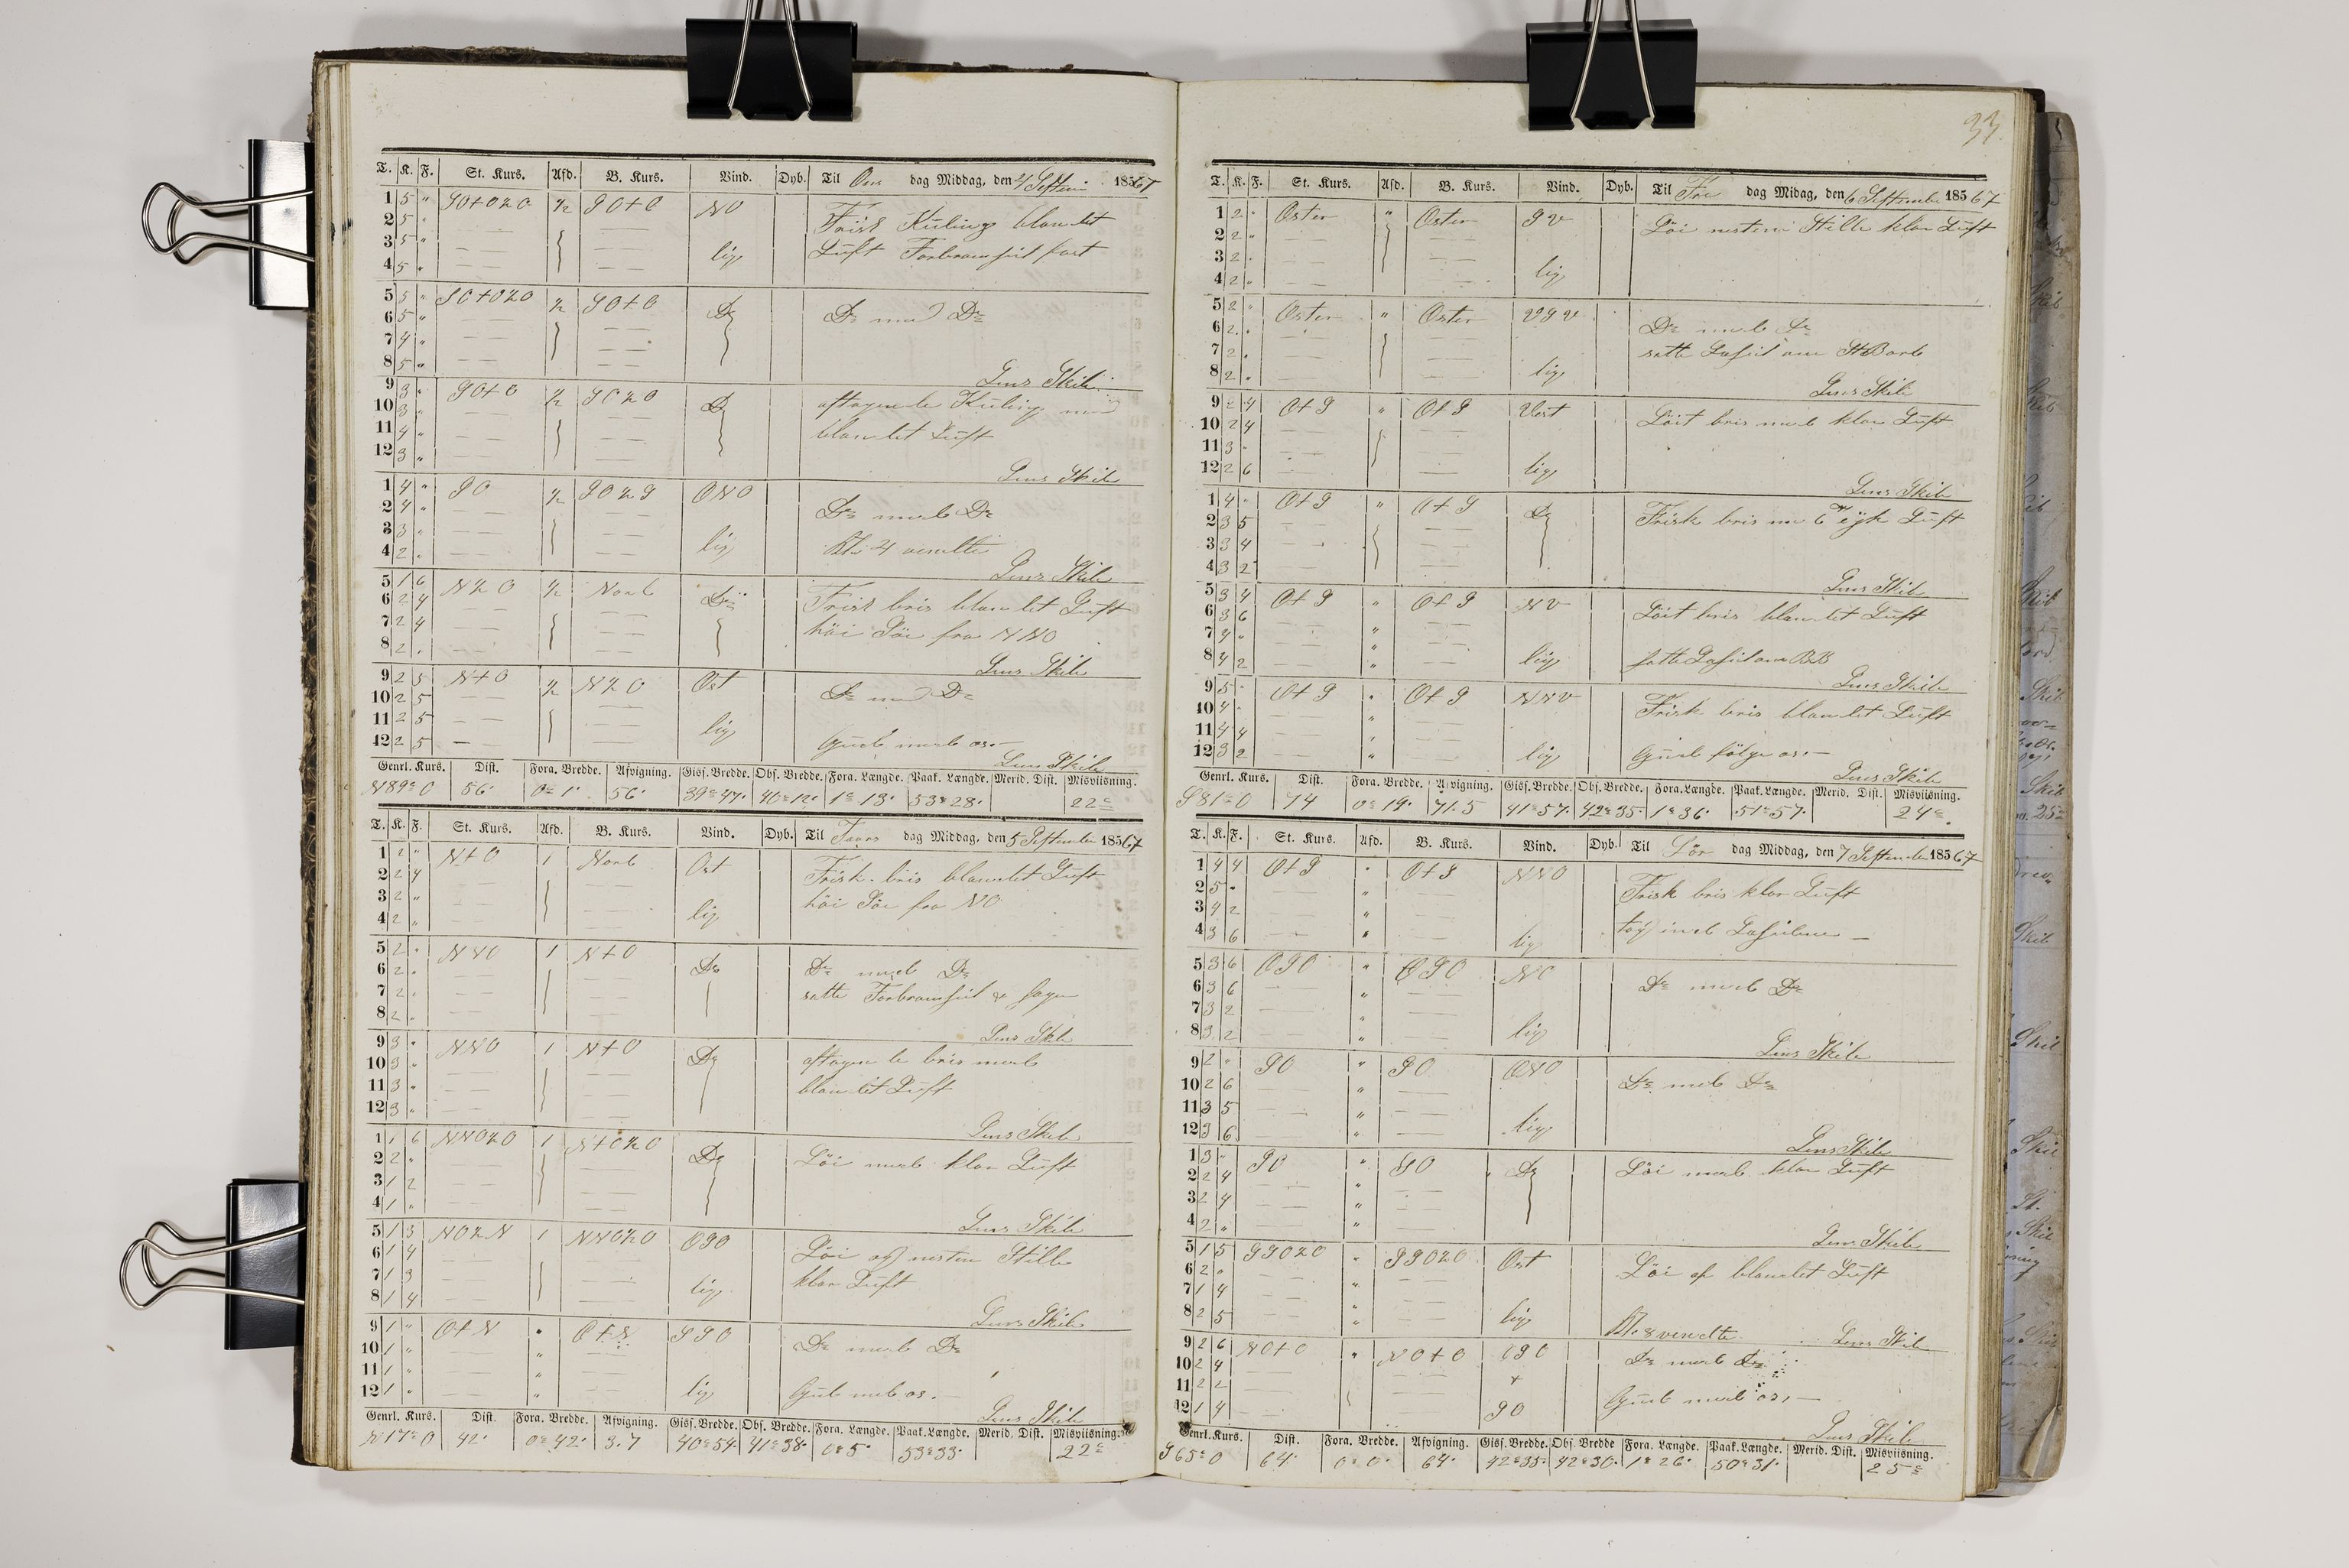 33
T. K. F. St. Kurs. Afd. B. Kurs. Vind. Dyb. Til Ons dag Middag, den 4 Septem 18567
1 5 " SO+O½O ½ SO+O NO Frisk Kuling blandet
2 5 "
3 5 " lig Luft Forbramseil fast
4 5 "
5 5 " SO+O½O ½ SO+O Do Do med Do
6 5 "
7 4 "
8 5 "
Lens Skib
9 3 " SO+O ½ SO½O Do aftagende Kuling med
10 3 "
11 4 " blandet Luft
12 3 "
Lens Skib
1 4 " SO ½ SO½S ONO
2 4 " Do med Do
3 3 "
4 2 " lig Kl. 4 vendte
Lens Skib
5 1 6 N½O ½ Nord Do Frisk bris blandet Luft
6 2 4
7 2 4 höi Söe fra NNO
8 2 "
Lens Skib
9 2 5 N+O ½ N½O Ost Do med Do
10 2 5
11 2 5 lig
12 2 5 Gud med os.
Lens Skib
Genrl. Kurs. Dist. Fora. Bredde. Afvigning. Gisf. Bredde. Obs. Bredde. Fora. Længde. Paak. Længde. Merid. Dist. Misviisning.
N89°O 56' 0°1' 56' 39°47' 40°12' 1°13' 53°28' 22°
T. K. F. St. Kurs. Afd. B. Kurs. Vind. Dyb. Til Tors dag Middag, den 5 September 18567
1 2 " N+O 1 Nord Ost Frisk bris blandet Luft
2 2 4
3 2 " höi Söe fra NO
4 2 " lig
5 2 " NNO 1 N+O Do Do med Do
6 2 "
7 2 " satte Forbramseil &
8 2 "
Lens Skib
9 3 " NNO 1 N+O Do aftagende bris med
10 3 "
11 3 " blandet Luft
12 3 "
Lens Skib
1 1 6 NNO½O 1 N+O½O Do Löi med klar Luft
2 2 "
3 1 2
4 1 "
Lens Skib
5 1 3 NO½N 1 NNO½O OSO Löi og nesten Stille
6 1 4
7 1 3 lig klar Luft
8 1 4
Lens Skib
9 1 " O+N " O+N SSO Do med Do
10 1 "
11 1 "
12 1 " lig Gud med os.
Lens Skib
Genrl. Kurs. Dist. Fora. Bredde. Afvigning. Gisf. Bredde. Obs. Bredde. Fora. Længde. Paak. Længde. Merid. Dist. Misviisning.
N17°O 42' 0°42' 3.7 40°54' 41°38' 0°5' 53°33' 22°
T. K. F. St. Kurs. Afd. B. Kurs. Vind. Dyb. Til Fre dag Midag, den 6 September 18567
1 2 " Oster " Oster SV Löi nesten Stille klar Luft
2 2 "
3 2 "
4 2 " lig
5 2 " Oster " Oster VSV
6 2 " Do med Do
7 2 " satte Læseil om StBord
8 2 " lig
Lens Skib
9 2 4 O+S " O+S Vest Löit bris med klar Luft
10 2 4
11 3 "
12 2 6 lig
Lens Skib
1 4 " O+S " O+S Do Frisk bris med Luft
2 3 5
3 3 4
4 3 2
Lens Skib
5 3 4 O+S " O+S NV Löit bris blandet Luft
6 3 6
7 4 "
8 4 2 lig satte Læseil om BB
Lens Skib
9 5 " O+S " O+S NNV Frisk bris blandet Luft
10 4 "
11 4 4
12 3 2 lig Gud fölge os.
Lens Skib
Genrl. Kurs. Dist. Fora. Bredde. Afvigning. Gisf. Bredde. Obs. Bredde. Fora. Længde. Paak. Længde. Merid. Dist. Misviisning.
S81°O 74 0°19' 71.5 41°57' 42°35' 1°36' 51°57' 24°
T. K. F. St. Kurs. Afd. B. Kurs. Vind. Dyb. Til Lör dag Middag, den 7 September 18567
1 4 4 O+S " O+S NNO Frisk bris klar Luft
2 5 "
3 4 2 tog ind Læseilene
4 3 6 lig
5 3 6 OSO " OSO NO
6 3 6 Do med Do
7 3 2
8 3 2 lig
Lens Skib
9 2 " SO " SO ONO Do med Do
10 2 6
11 3 5
12 3 6 lig
Lens Skib
1 3 " SO " SO Do Löi med klar Luft
2 2 4
3 2 4
4 2 "
Lens Skib
5 1 5 SSO½O " SSO½O Ost Löi af blandet Luft
6 2 "
7 1 4
8 2 5 lig Kl. 8 vendte Lens Skib
9 2 6 NO+O " NO+O OSO Do med Do
10 2 4
11 2 2 + Gud med os.
12 1 4 SO
Lens Skib
Genrl. Kurs. Dist. Fora. Bredde. Afvigning. Gisf. Bredde. Obs. Bredde Fora. Længde. Paak. Længde. Merid. Dist. Misviisning.
S65°O 64' 0°0' 64' 42°35' 42°30' 1°26' 50°31' 25°